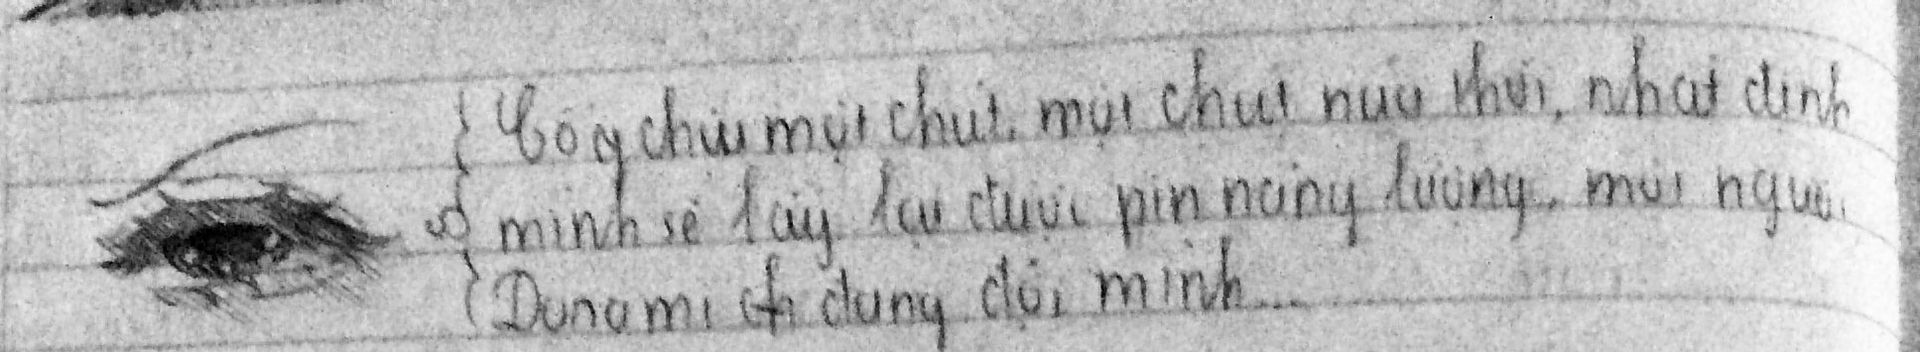 Cố chịu một chút, một chút nữa thôi, nhất định
mình sẽ lấy lại được pin năng lượng, mọi người,
Dorami đang đợi mình...